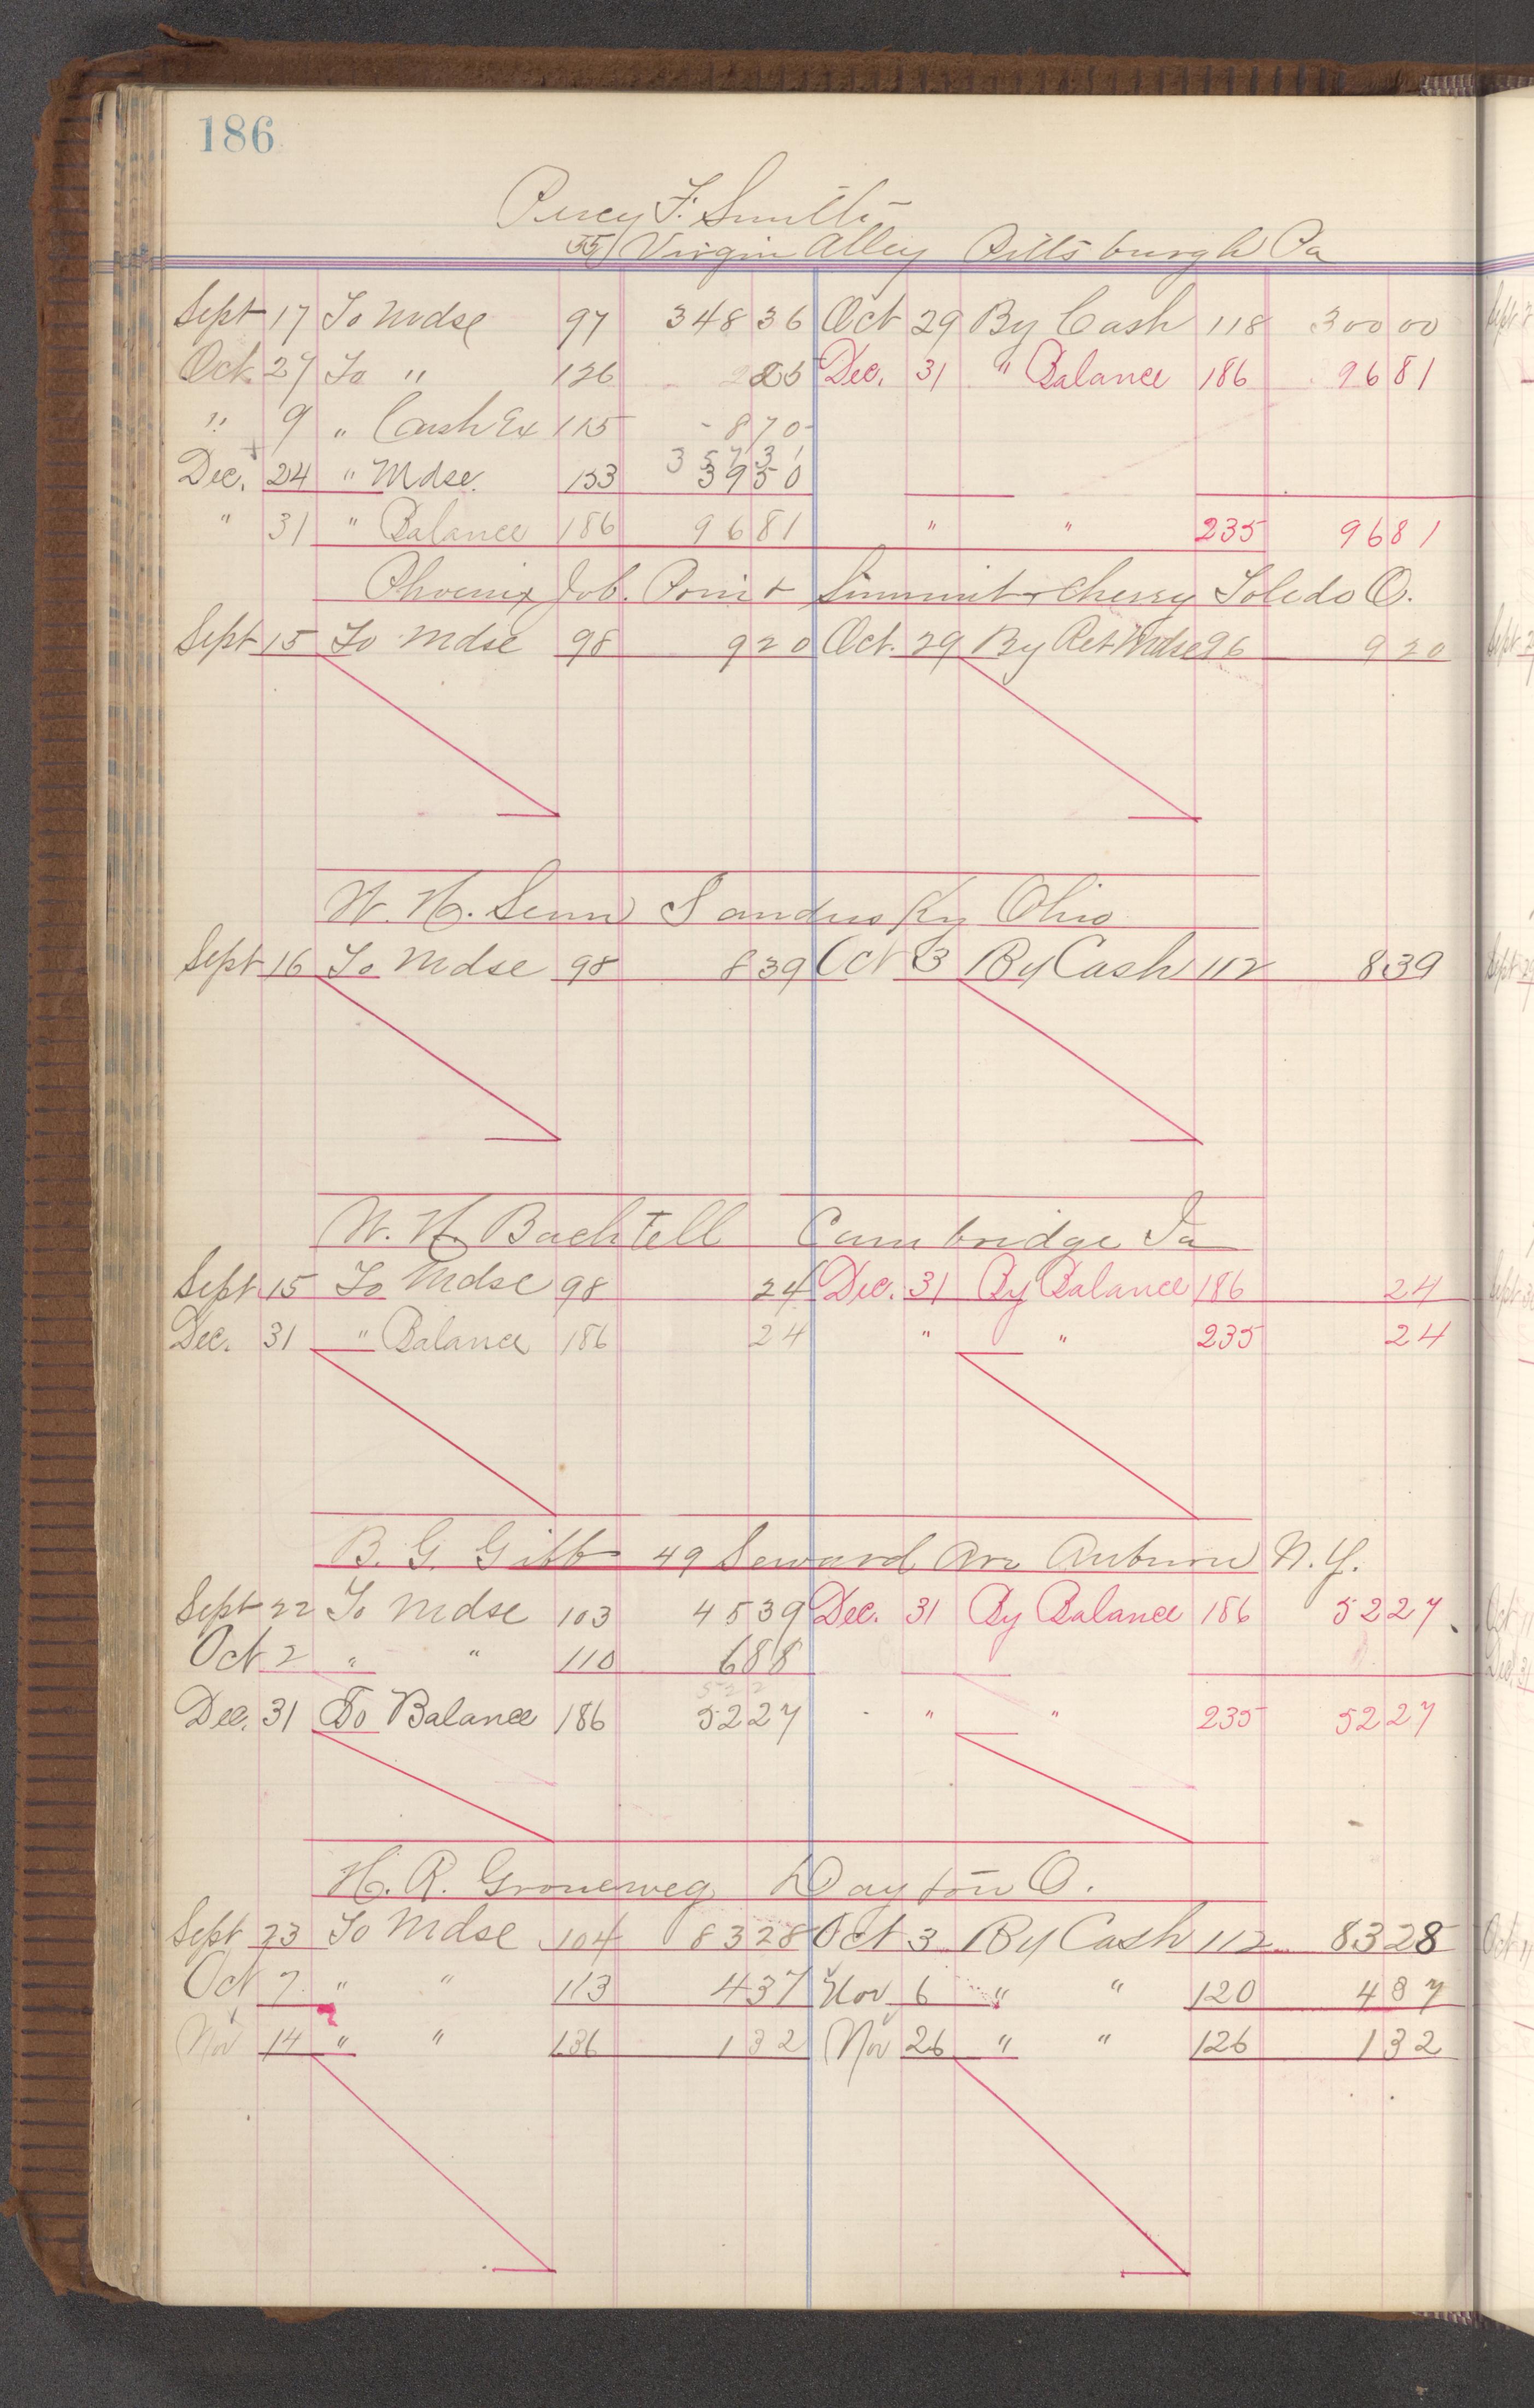 186
Percy F. Smith
55 Virgin Alley Pittsburgh Pa
Sept 17 To Mdse 97 348 36 Oct 29 By Cash 118 300 00
Oct. 27 To " 126 2 25 Dec. 31 " Balance 186 96 81
" 9 " Cash Ex 115 - 8 70 -
357 31
Dec. 24 " Mdse. 153 39 50
" 31 " Balance 186 96 81 " " 235 96 81
Phoenix Job. Print Summit & Cherry Toledo O.
Sept 15 To Mdse 98 9 20 Oct. 29 By Ret Mdse 96 9 20
W. H. Senn Sandusky Ohio
Sept 16 To Mdse 98 8 39 Oct 3 By Cash 112 8 39
W. H. Bachtell Cambridge Ia
Sept 15 To Mdse 98 24 Dec. 31 By Balance 186 24
Dec. 31 " Balance 186 24 " " 235 24
B. G. Gibb 49 Seward Ave Auburn N.Y.
Sept 22 To Mdse 103 45 39 Dec. 31 By Balance 186 52 27
Oct 2 " " 110 6 88
522
Dec. 31 To Balance 186 52 27 " " 235 52 27
H. R. Groneweg Dayton O.
Sept 23 To Mdse 104 83 28 Oct 3 By Cash 112 83 28
Oct 7 " " 113 4 37 Nov 6 " " 120 4 37
Nov 14 " " 136 1 32 Nov 26 " " 126 1 32